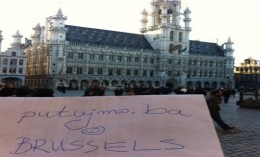 putujmo.ba
BRUSSELS